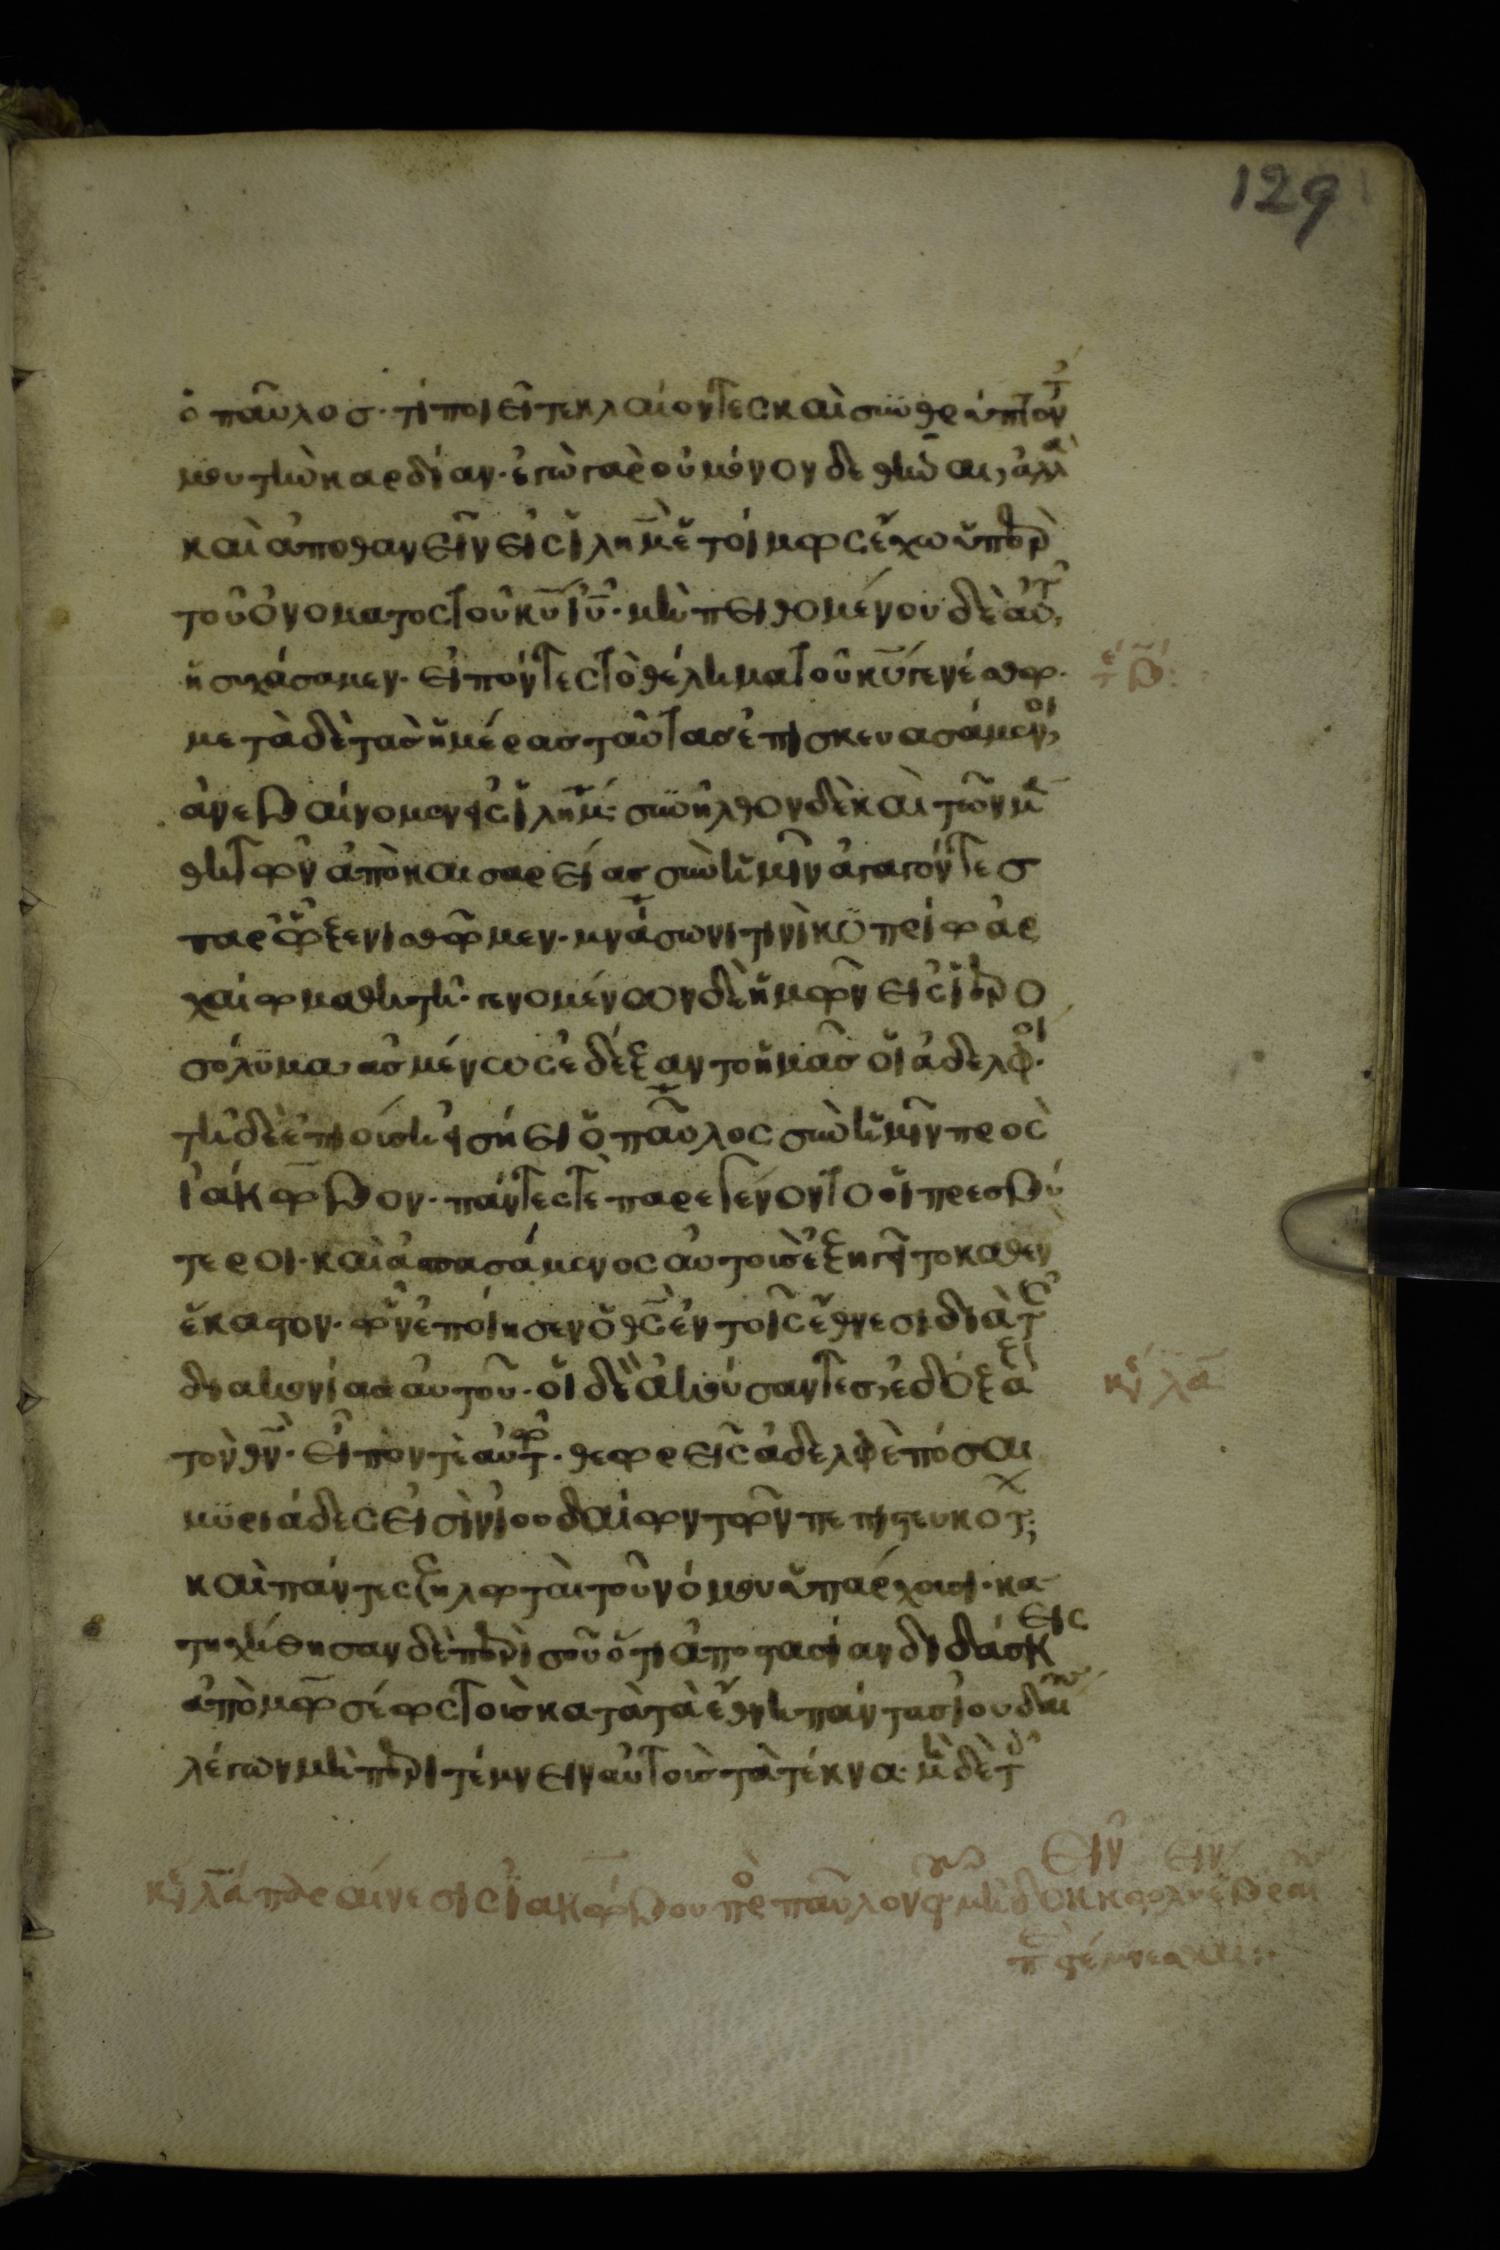 129
ὁ παῦλος· τί ποιεῖτε κλαίοντες καὶ συνθρύπτοντ
μου τὴν καρδίαν· ἐγὼ γὰρ οὐ μόνον δεθῆναι, ἀλλὰ
καὶ ἀποθανεῖν εἰς ἰλημ̅ ἑτοίμως ἔχω ὑπὲρ
τοῦ ὀνόματος τοῦ κυ̅ ιυ̅· μὴ πειθομένου δὲ αὐτ,
ἡσυχάσαμεν· εἰπόντες τὸ θέλημα τοῦ κυ̅ γενέσθω·
μετὰ δὲ τὰς ἡμέρας ταύτας ἐπισκευασάμενοι,
ἀνεβαίνομεν εἰς ἰλημ̅· συνῆλθον δὲ καὶ τῶν μα
θητῶν ἀπὸ καισαρείας σὺν ἡμῖν ἄγαγόντες
παρ ὧ ξενισθῶμεν· μνάσωνι τινὶ κυπρίω ἀρ
χαίω μαθητῆ· γενομένων δὲ ἡμῶν εἰς ἱερο
σόλυμα ἀσμένως ἐδέξαντο ἡμᾶς οἱ ἀδελφοί·
τῆ δὲ ἐπιούση εἰσήει ὁ παῦλος σὺν ἡμῖν πρὸς
ἰάκωβον· πάντες τὲ παρεγένοντο οἱ πρεσβύ
τεροι· καὶ ἀσπασάμενος αὐτοὺς ἐξηγεῖτο καθ ἓν
ἕκαστον· ὧν ἐποίησεν ὁ θς̅ ἐν τοῖς ἔθνεσι διὰ τῆς
διακονίας αὐτοῦ· οἱ δὲ ἀκούσαντες, ἐδόξαζ
τὸν θν̅· εἶπόν τὲ αὐτῶ· θεωρεῖς ἀδελφὲ πόσαι
μυριάδες εἰσὶν ἰουδαίων τῶν πεπιστευκότ;
καὶ πάντες ζηλωταὶ τοῦ νόμου ὑπάρχουσι· κα
τηχήθησαν δὲ περὶ σοῦ ὅτι ἀποστασίαν διδάσκεις
ἀπὸ μωσέως τοὺς κατὰ τὰ ἔθνη πάντας ἰουδαί
λέγων μὴ περιτέμνειν αὐτοὺς τὰ τέκνα· μὴ δὲ τοῖς